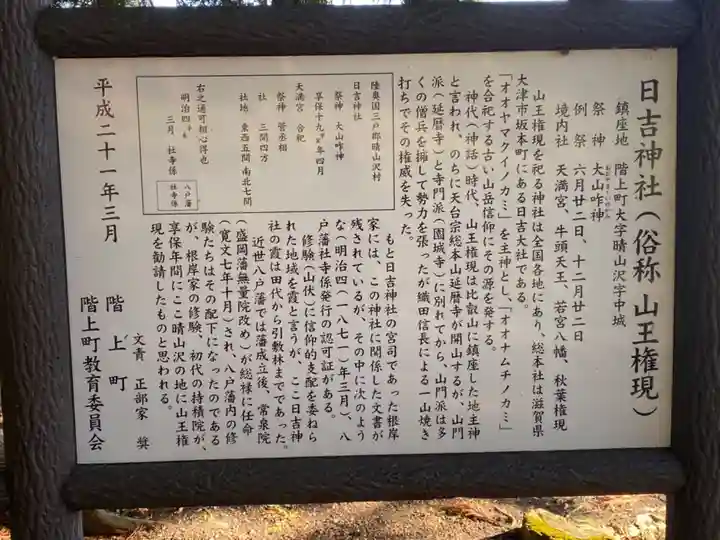 日吉神社(俗称 山王権現)
鎮座地 階上町大字晴山沢字中城
祭神 大山咋神
例祭 六月廿二日、十二月廿二日
境内社 天満宮、牛頭天王、若宮八幡、秋葉権現
山王権現を祀る神社は全国各地にあり、総本社は滋賀県
大津市坂本町にある日吉大社である。
「オオヤマクイノカミ」を主神とし、「オオナムチノカミ」
を合祀する古い山岳信仰にその源を発する。
神代(神話)時代、山王権現は比叡山に鎮座した地主神
と言われ、のちに天台宗総本山延暦寺が開山するが、山門
派(延暦寺)と寺門派(園城寺)に別れてから、山門派は多
くの僧兵を擁して勢力を張ったが織田信長による一山焼き
打ちでその権威を失った。
もと日吉神社の宮司であった根岸
家には、この神社に関係した文書が
残されているが、その中に次のよう
な(明治四(一八七一)年三月)、八
戸藩社寺係発行の認可証がある。
修験(山伏)に信仰的支配を委ねら
れた地域を霞と言うが、ここ日吉神
社の霞は田代から引敷林までであった。
近世八戸藩では藩成立後、常泉院
(盛岡藩無量院改め)が総禄に任命
(寛文七年十月)され、八戸藩内の修
験たちはその配下になったのである
が、根岸家の修験、初代の持積院が、
享保年間にここ晴山沢の地に山王権
現を勧請したものと思われる。
陸奥国三戸郡晴山沢村
日吉神社
祭神 大山咋神
享保十九年四月
天満宮 合祀
祭神 菅丞相
社 三間四方
社地 東西五間 南北七間
右之通可相心得也
明治四年
三月 社寺係
八戸藩
社寺係
文責 正部家 奨
平成二十一年三月
階上町
階上町教育委員会